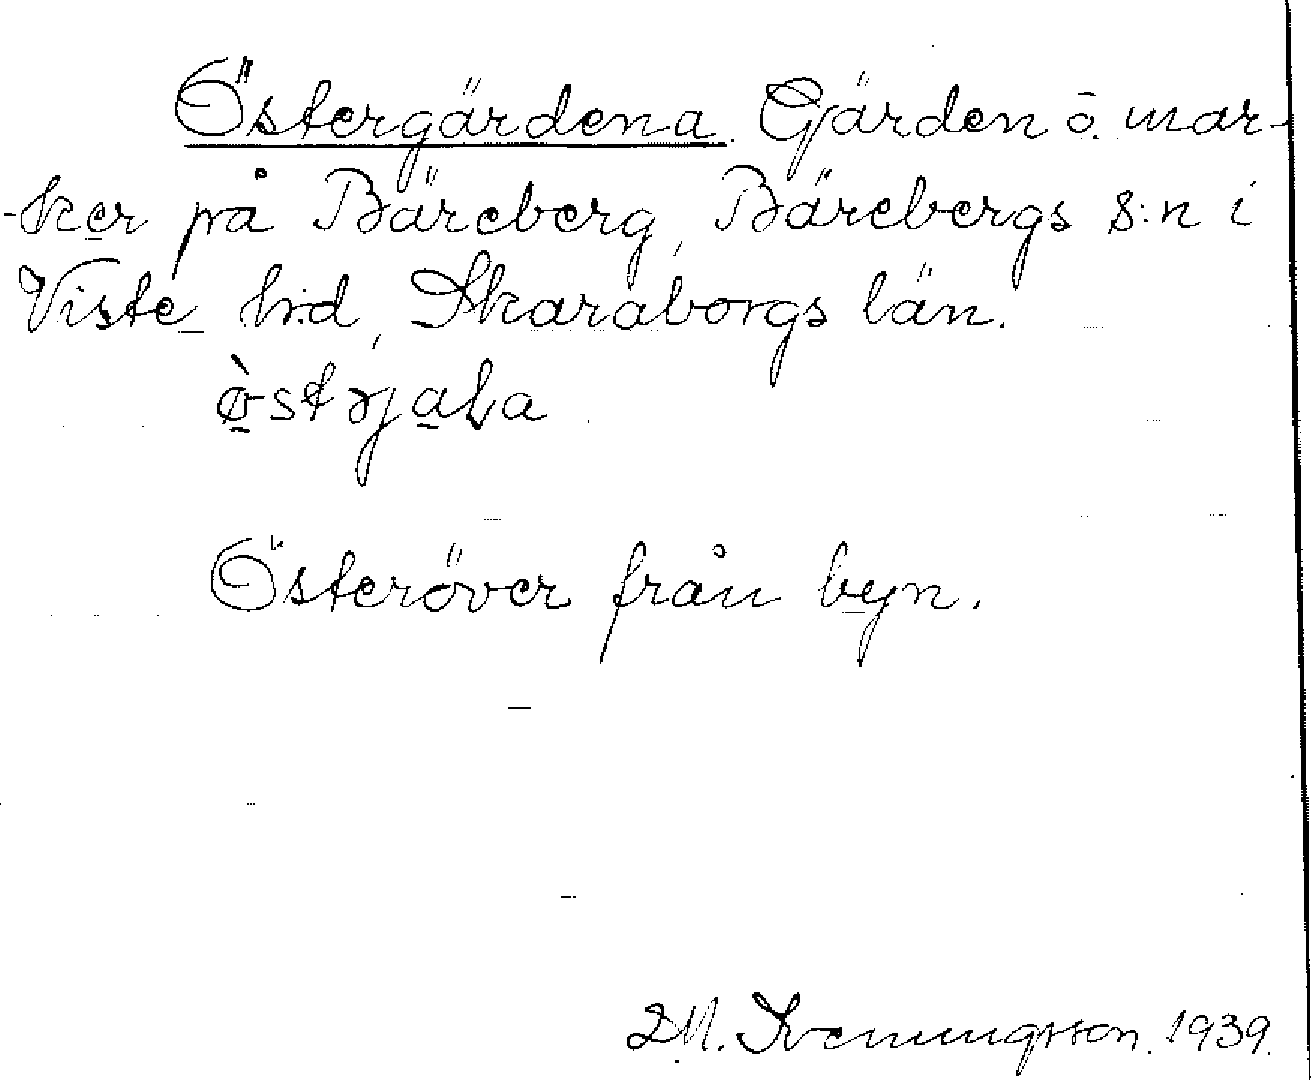 Östergärdena. Gärden o. mar-
-ker på Bäreberg, Bärebergs s:n i
Viste h:d, Skaraborgs län.
ö̀strja̱ɽa
Österöver från byn.
D.M. Svenningsson. 1939.